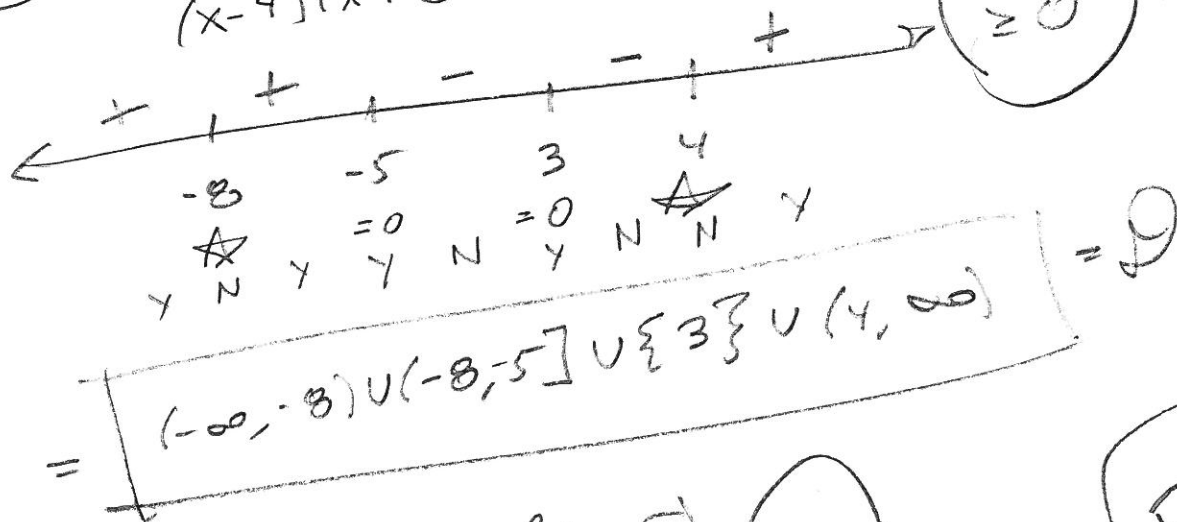 (x-4)(x+
≥ 0
+ + - - +
-8 -5 3 4
☆ =0 =0 ☆
Y N Y Y N Y N N Y
= (-∞,-8)∪(-8,-5]∪{3}∪(4,∞) = D